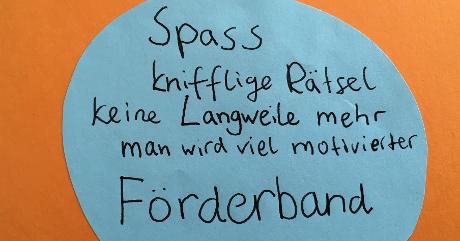 Spass
knifflige Rätsel
keine Langweile mehr
man wird viel motivierter
Förderband